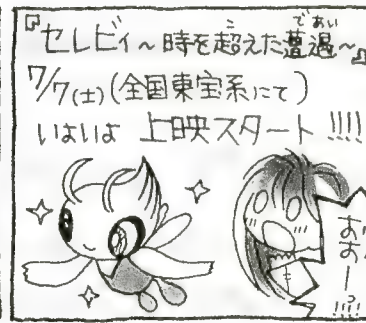 『セレビィ～時を超えた遭遇～』
こ
であい
7/7(土)(全国東宝系にて)
いよいよ 上映スタート!!!!
おぉ
おおー
!!!?